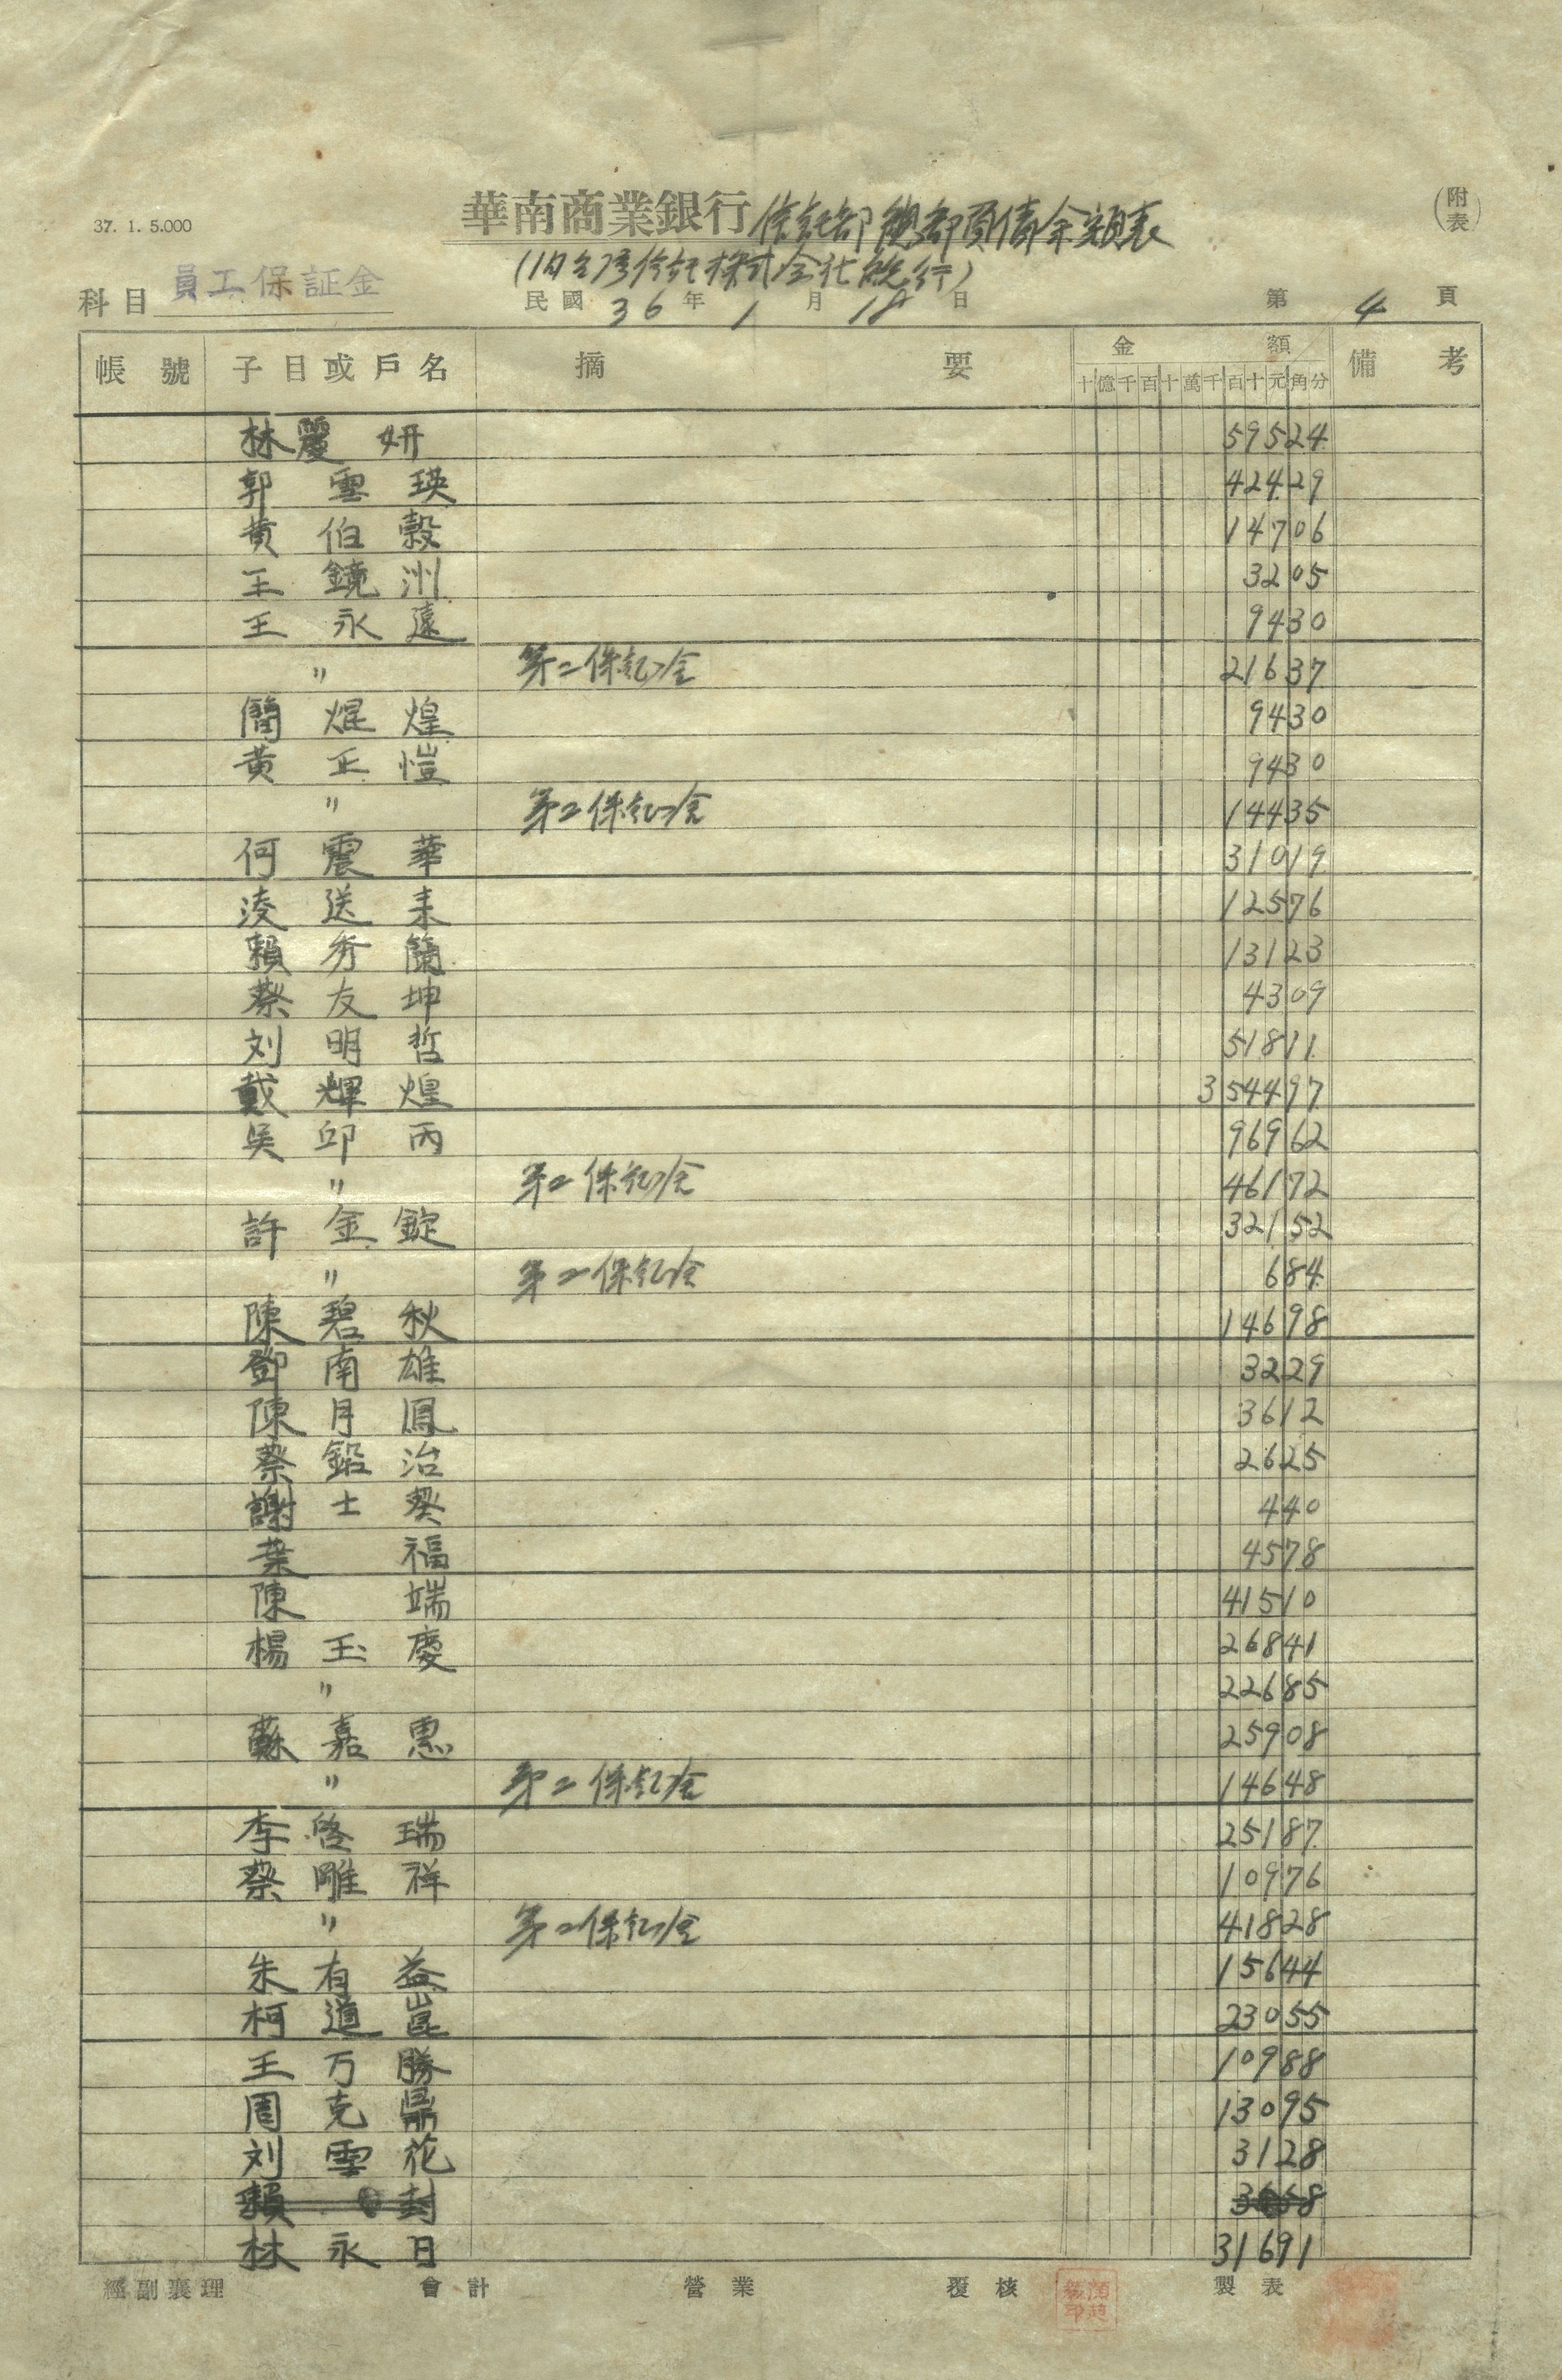 37. 1. 5.000
華南商業銀行 信託部總部負債余額表
(附表)
(旧台湾信託株式会社銀行)
科目 員工保証金
民國 36 年 1 月 18 日
第 4 頁
帳號 子目或戶名 摘要 金額 備考
十億千百十萬千百十元角分
林麗妍 59524
郭雲瑛 42429
黃伯穀 14706
王鏡洲 3205
王永遠 9430
〃 第二保証金 21637
簡焜煌 9430
黃正愷 9430
〃 第二保証金 14435
何震華 31019
凌送来 12576
賴秀蘭 13123
蔡友坤 4309
刘明哲 51811
戴輝煌 354497
吳邱丙 96962
〃 第二保証金 46172
許金錠 32152
〃 第二保証金 684
陳碧秋 14698
鄧南雄 3229
陳月鳳 3612
蔡鍛治 2625
謝士葵 440
葉福 4578
陳端 41510
楊玉慶 26841
〃 22685
蘇嘉惠 25908
〃 第二保証金 14648
李啓瑞 25187
蔡雕祥 10976
〃 第二保証金 41828
朱有益 15644
柯道崑 23055
王万勝 10988
周克鼎 13095
刘雲花 3128
林永日 31691
經副襄理 會計 營業 覆核 製表